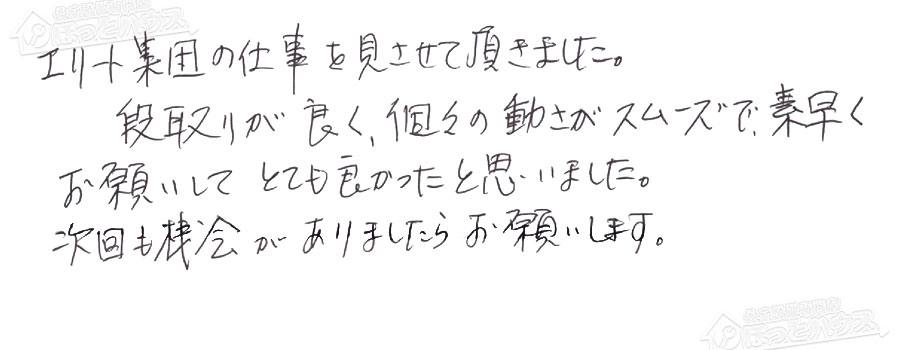 住宅設備専門店
ほっとハウス
エリート集団の仕事を見させて頂きました。
段取りが良く、個々の動きがスムーズで、素早く
お願いしてとても良かったと思いました。
次回も機会がありましたらお願いします。
住宅設備専門店
ほっとハウス